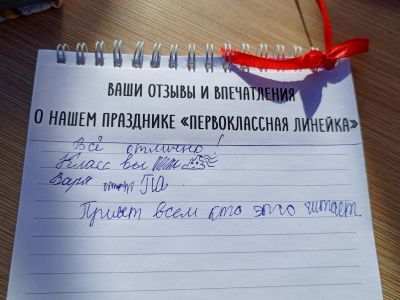 ВАШИ ОТЗЫВЫ И ВПЕЧАТЛЕНИЯ
О НАШЕМ ПРАЗДНИКЕ «ПЕРВОКЛАССНАЯ ЛИНЕЙКА»
Всё отлично!
Класс вы
Варя
Привет всем кто это читает.